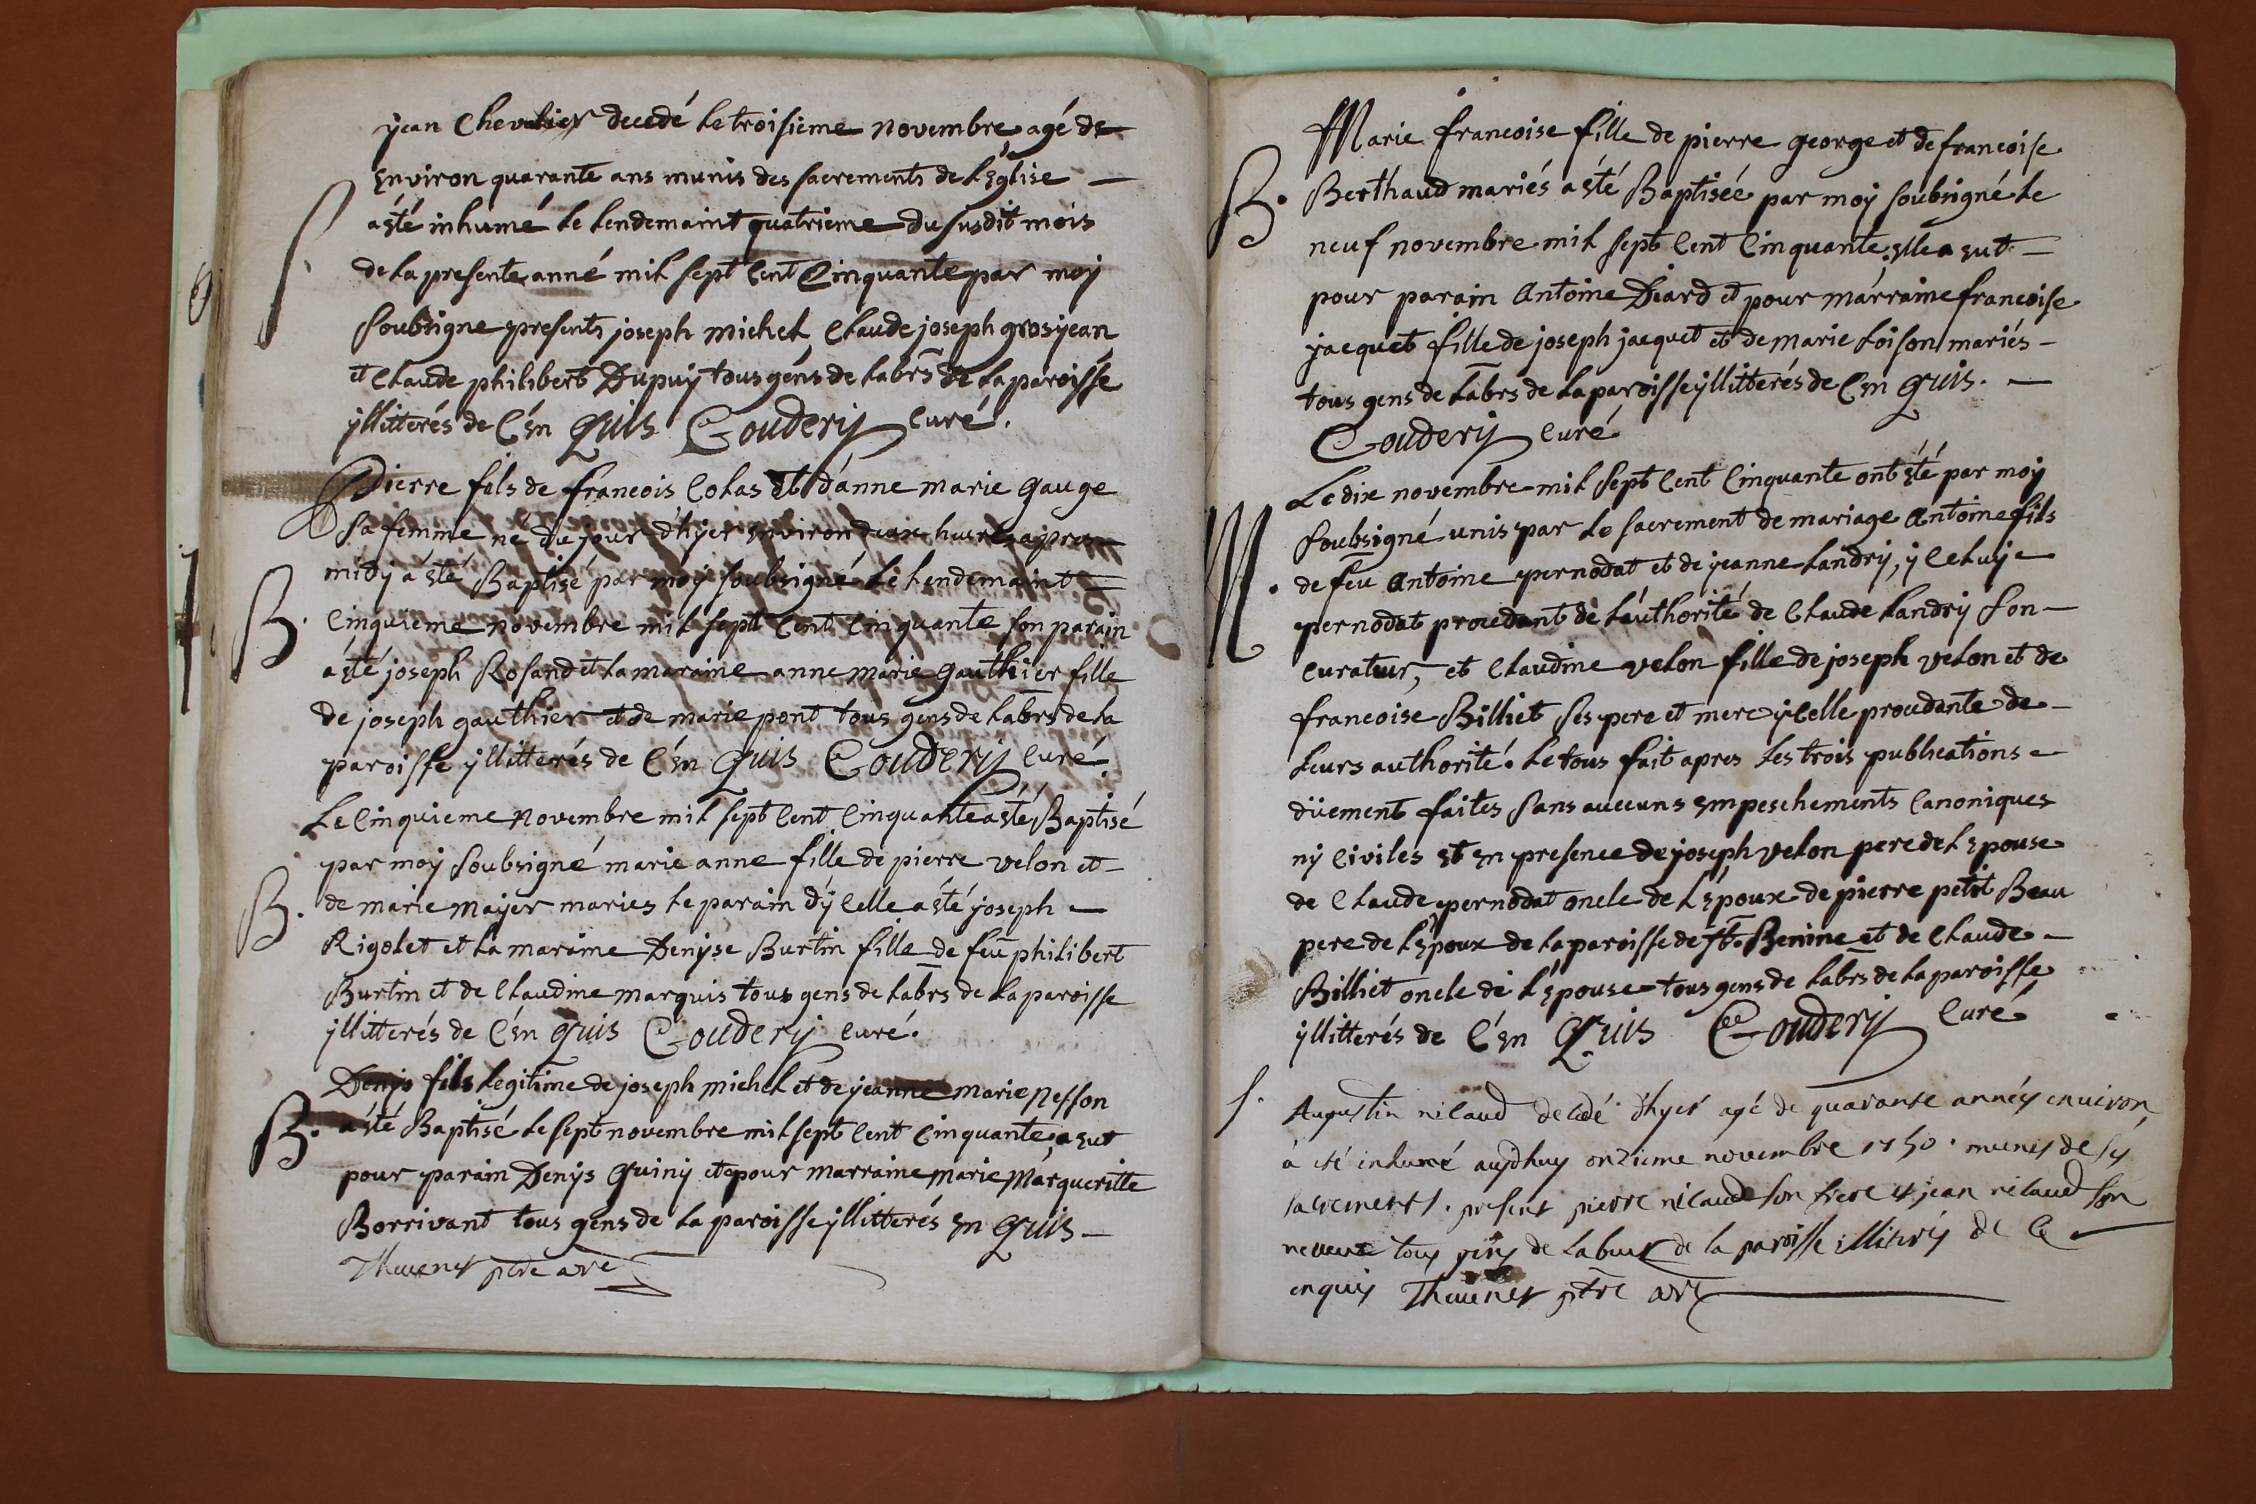 jean Chevalier decedé le troisieme novembre agé de
environ quarante ans munis des sacrements de l'église
S. a été inhumé le lendemaint quatrieme du susdit mois
de la presente anné mil sept cent Cinquante par moy
soubsigne presents joseph michel Claude joseph grosjean
et Claude philibert Dupuy tous gens de labrs de la paroisse
yllitterés de C'en quis Coudery curé.
Pierre fils de francois Colas et d'anne marie gauge
sa femme né du jour d'hyer environ deux heures apres
midy a été Baptisé par moy soubsigné le lendemaint
B. Cinquieme novembre mil sept cent cinquante son parain
a été joseph Rosand et la maraine anne marie gauthier fille
de joseph gauthier et de marie pont tous gens de labrs de la
paroisse yllitterés de C'en quis Coudery curé.
Le Cinquieme novembre mil sept cent cinquante a été Baptisé
par moy soubsigné marie anne fille de pierre velon et
B. de marie mayer maries le parain d'ycelle a été joseph
Rigolet et la maraine Denyse Burtin fille de feu philibert
Burtin et de Claudine marquis tous gens de labrs de la paroisse
yllitterés de C'en quis Coudery curé.
Denys fils legitime de joseph michel et de jeanne marie nesson
B. a été Baptisé le sept novembre mil sept cent cinquante, a eut
pour parain Denys Guiny et pour marraine marie Margueritte
Borrivant tous gens de la paroisse yllitterés en quis
Thevenet ptre
Marie francoise fille de pierre george et de francoise
B. Berthaud mariés a été Baptisée par moy soubsigné le
neuf novembre mil sept cent cinquante, elle a eut
pour parain Antoine Diard et pour marraine francoise
jacquet fille de joseph jacquet et de marie loison mariés
tous gens de labrs de la paroisse yllitterés de C'en quis.
Coudery curé
Le dix novembre mil sept cent cinquante ont été par moy
soubsigné unis par le sacrement de mariage Antoine fils
M. de feu Antoine pernodat et de jeanne landry, yceluy
pernodat procedant de l'authorité de Claude landry son
curateur, et Claudine velon fille de joseph velon et de
francoise Billiet ses pere et mere ycelle procedante de
leurs authorité. Le tous fait apres les trois publications
düement faites sans aucuns empeschements Canoniques
ny Civiles et en presence de joseph velon pere de l'epouse
de Claude pernodat oncle de l'époux de pierre petit Beau
pere de l'époux de la paroisse de st. Benine et de Claude
Billiet oncle de l'épouse tous gens de labrs de la paroisse
yllitterés de C'en quis Coudery Curé
S. Augustin nicaud decedé d'hyer agé de quarante années environ
à eté inhumé aujdhuy onzieme novembre 1750. munis de ses
sacrements. present pierre nicaud son frere et jean nicaud son
neveux tous gens de labeur de la paroisse illiterés de ce
enquis Thevenet ptre